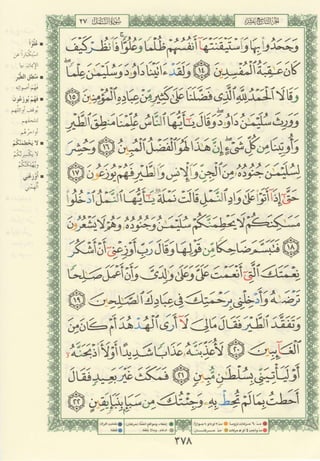 الجزء التاسع عشر
سورة النمل ٢٧
وَجَحَدُوا۟ بِهَا وَٱسْتَيْقَنَتْهَآ أَنفُسُهُمْ ظُلْمًا وَعُلُوًّا ۚ فَٱنظُرْ كَيْفَ
كَانَ عَـٰقِبَةُ ٱلْمُفْسِدِينَ ١٤ وَلَقَدْ ءَاتَيْنَا دَاوُۥدَ وَسُلَيْمَـٰنَ عِلْمًا ۖ
وَقَالَا ٱلْحَمْدُ لِلَّهِ ٱلَّذِى فَضَّلَنَا عَلَىٰ كَثِيرٍ مِّنْ عِبَادِهِ ٱلْمُؤْمِنِينَ ١٥
وَوَرِثَ سُلَيْمَـٰنُ دَاوُۥدَ ۖ وَقَالَ يَـٰٓأَيُّهَا ٱلنَّاسُ عُلِّمْنَا مَنطِقَ ٱلطَّيْرِ
وَأُوتِينَا مِن كُلِّ شَىْءٍ ۖ إِنَّ هَـٰذَا لَهُوَ ٱلْفَضْلُ ٱلْمُبِينُ ١٦ وَحُشِرَ
لِسُلَيْمَـٰنَ جُنُودُهُۥ مِنَ ٱلْجِنِّ وَٱلْإِنسِ وَٱلطَّيْرِ فَهُمْ يُوزَعُونَ ١٧
حَتَّىٰٓ إِذَآ أَتَوْا۟ عَلَىٰ وَادِ ٱلنَّمْلِ قَالَتْ نَمْلَةٌ يَـٰٓأَيُّهَا ٱلنَّمْلُ ٱدْخُلُوا۟
مَسَـٰكِنَكُمْ لَا يَحْطِمَنَّكُمْ سُلَيْمَـٰنُ وَجُنُودُهُۥ وَهُمْ لَا يَشْعُرُونَ
١٨ فَتَبَسَّمَ ضَاحِكًا مِّن قَوْلِهَا وَقَالَ رَبِّ أَوْزِعْنِىٓ أَنْ أَشْكُرَ
نِعْمَتَكَ ٱلَّتِىٓ أَنْعَمْتَ عَلَىَّ وَعَلَىٰ وَٰلِدَىَّ وَأَنْ أَعْمَلَ صَـٰلِحًا
تَرْضَىٰهُ وَأَدْخِلْنِى بِرَحْمَتِكَ فِى عِبَادِكَ ٱلصَّـٰلِحِينَ ١٩
وَتَفَقَّدَ ٱلطَّيْرَ فَقَالَ مَا لِىَ لَآ أَرَى ٱلْهُدْهُدَ أَمْ كَانَ مِنَ
ٱلْغَآئِبِينَ ٢٠ لَأُعَذِّبَنَّهُۥ عَذَابًا شَدِيدًا أَوْ لَأَا۟ذْبَحَنَّهُۥٓ
أَوْ لَيَأْتِيَنِّى بِسُلْطَـٰنٍ مُّبِينٍ ٢١ فَمَكَثَ غَيْرَ بَعِيدٍ فَقَالَ
أَحَطتُ بِمَا لَمْ تُحِطْ بِهِۦ وَجِئْتُكَ مِن سَبَإٍۭ بِنَبَإٍ يَقِينٍ ٢٢
٣٧٨